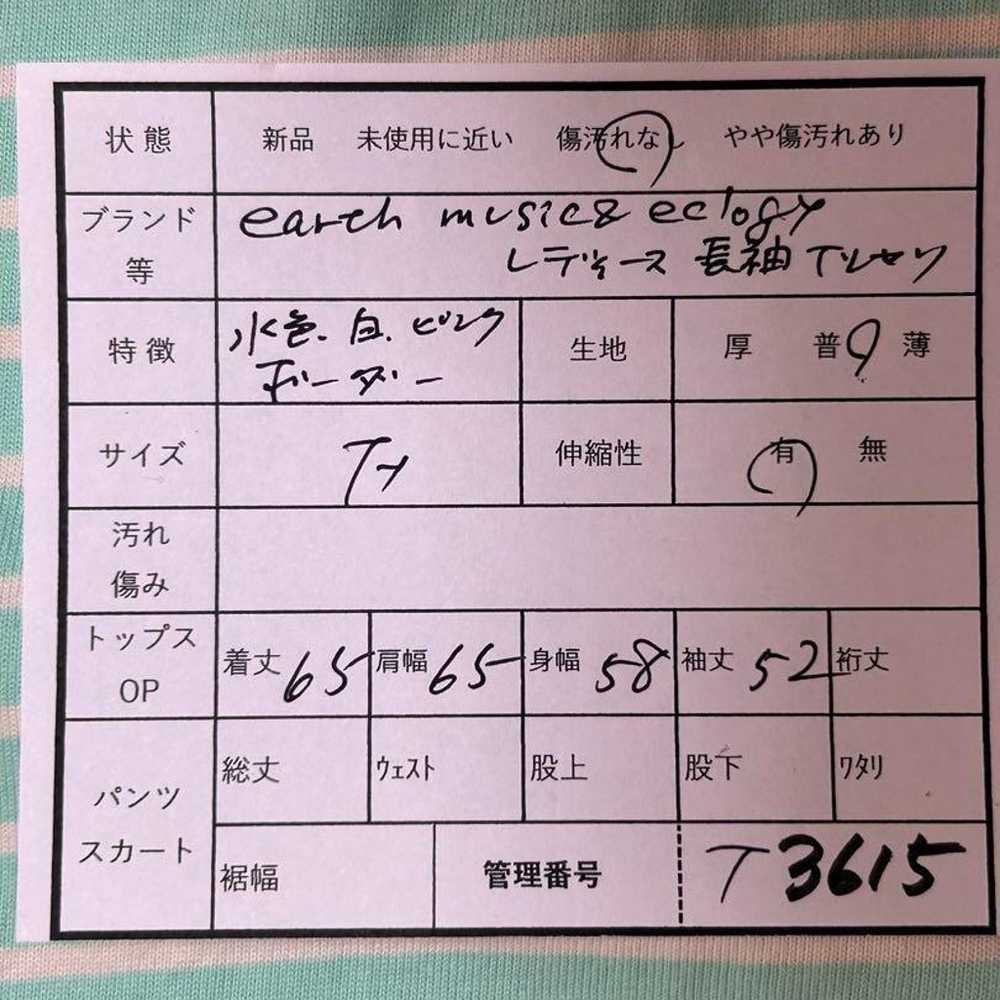 状態 新品 未使用に近い 傷汚れなし やや傷汚れあり
ブランド等 earth music& eclogy
レディース 長袖Tシャツ
特徴 水色.白.ピンク
ボーダー
生地 厚 普 薄
サイズ
伸縮性 有 無
汚れ
傷み
トップス
OP
着丈 65 肩幅 65 身幅 58 袖丈 52 裄丈
パンツ
スカート
総丈 ウェスト 股上 股下 ワタリ
裾幅 管理番号 T3615